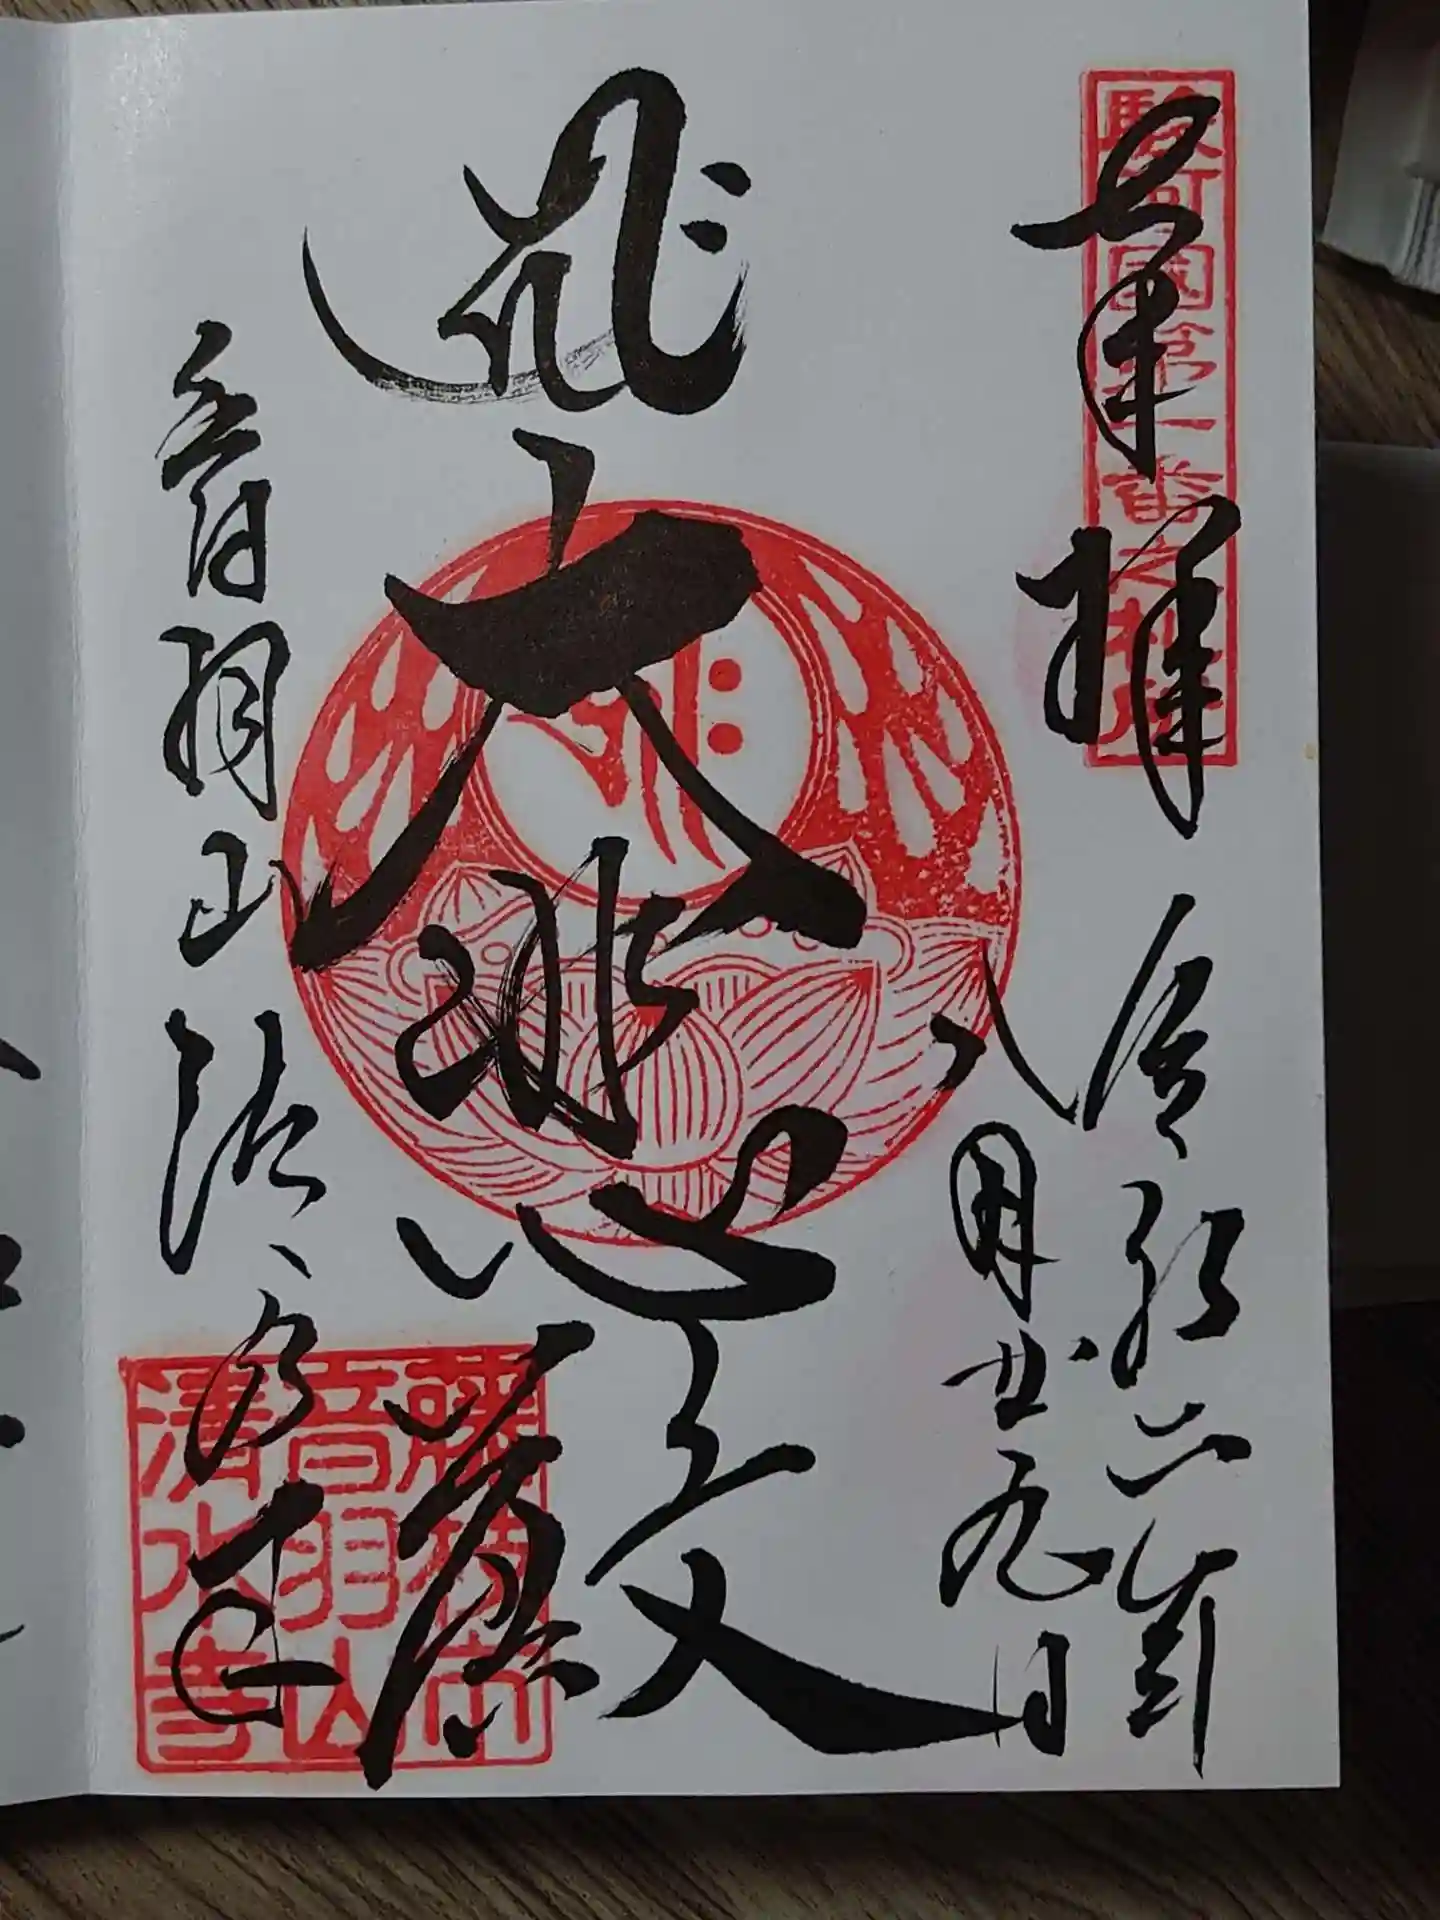 駿河國第一番之札所
奉拝
令和六年
八月廿九日
大悲殿
音羽山
清水寺
藤枝市
音羽山
清水寺